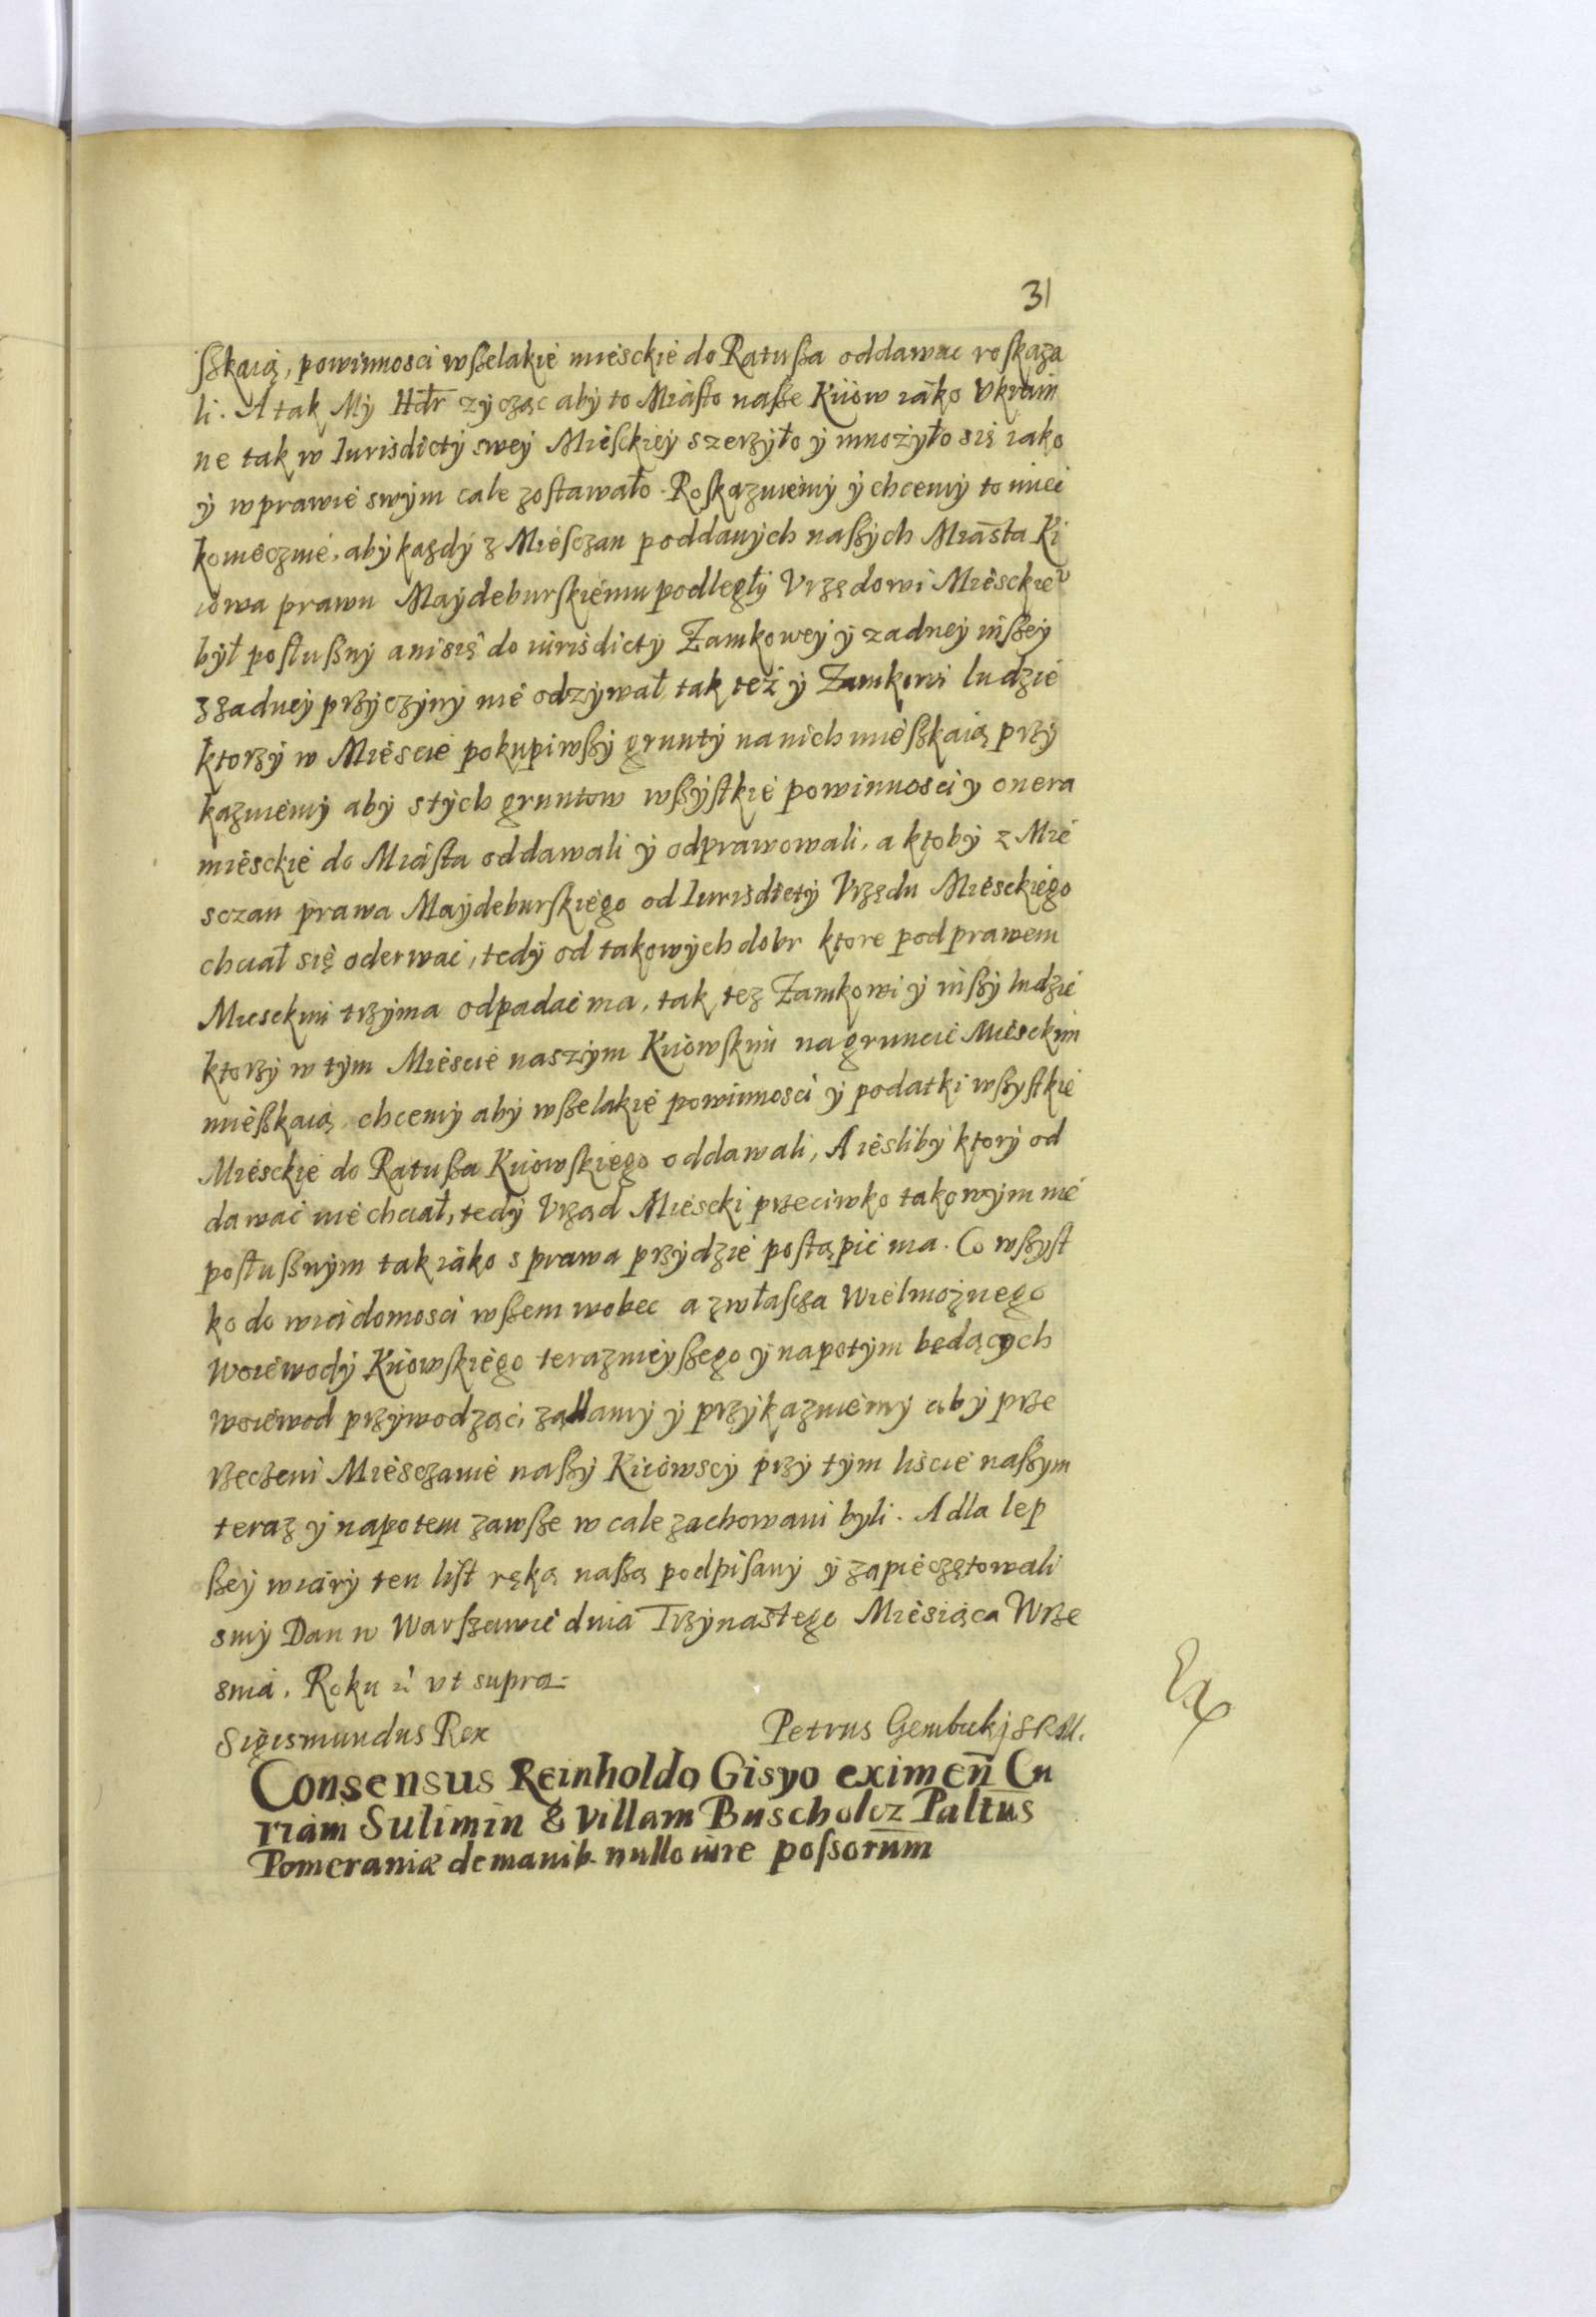 31
ſzkaią, powinnosci wſzelakie mieſckie do Ratuſza oddawac roſkaza
li. A tak My Hdr zycząc aby to Miaſto naſze Kiiow iako Vkrain
ne tak w Iurisdicty swey Mieſckiey szerzyło y mnożyło się iako
y w prawie swym cale zoſtawało. Roſkazuiemy y chcemy to miec
koniecznie, aby kazdy z Mieſczan poddanych naſzych Miasta Ki
iowa prawu Maydeburſkiemu podległy Vrzędowi Miesckieᵒ
był poſłuſzny ani się do iurisdicty Zamkowey y zadney inſzey
z zadney przyczyny nie odzywał tak też y Zamkowi ludzie
ktorzy w Miescie pokupiwſzy grunty na nich mieſzkaią przy
kazuiemy aby s tych gruntow wſzyſtkie powinnosci y onera
miesckie do Miaſta oddawali y odprawowali, a ktoby z Mie
sczan prawa Maydeburſkiego od Iurisdicty Vrzędu Miesckiego
chciał się oderwać, tedy od takowych dobr ktore pod prawem
Miesckim trzyma odpadać ma, tak tez Zamkowi y inſzy ludzie
ktorzy w tym Miescie naszym Kiiowſkim na gruncie Miesckim
mieſzkaią, chcemy aby wſzelakie powinnosci y podatki wſzyſtkie
Miesckie do Ratuſza Kiiowſkiego oddawali, A ieſliby ktory od
dawać nie chciał, tedy Vrząd Miescki przeciwko takowym nie
poſłuſznym tak iako s prawa przydzie poſtąpić ma. Co wſzyſt
ko do wiadomosci wſzem wobec a zwłaſcza Wielmożnego
Woiewody Kiiowſkiego teraznieyſzego y na potym będących
woiewod przywodząc, ządamy y przykazuiemy aby prze
rzeczeni Miesczanie naſzy Kiiowscy przy tym liscie naſzym
teraz y napotem zawſze w cale zachowani byli. A dla lep
ſzey wiary ten liſt ręką naſzą podpiſany y zapieczętowali
smy Dan w Warſzawie dnia Trzynastego Miesiąca Wrze
snia. Roku ut supra
Sigismundus Rex Petrus Gembicki SRM.
Consensus Reinholdo Gisyo eximen̄ Cu
riam Sulimin & Villam Buscholcz Paltus
Pomeraniæ de manib. nullo iure poſsorum
Ex